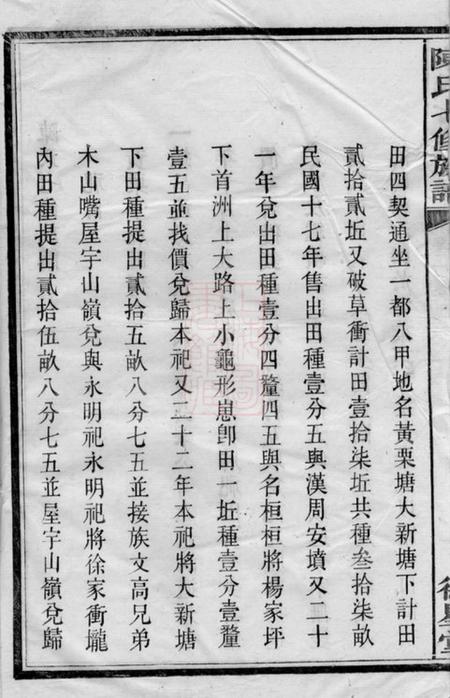 陳氏七修族譜
田四契通坐一都八甲地名黃栗塘大新塘下計田
貳拾貳坵又破草衝計田壹拾柒坵共種叁拾柒畝
民國十七年售出田種壹分五與漢周安墳又二十
一年兌出田種壹分四釐四五與名桓桓將楊家坪
下首洲上大路上小龜形崽卽田一坵種壹分壹釐
壹五並找價兌歸本祀又二十二年本祀將大新塘
下田種提出貳拾五畝八分七五並接族文高兄弟
木山嘴屋宇山嶺兌與永明祀永明祀將徐家衝壠
內田種提出貳拾伍畝八分七五並屋宇山嶺兌歸